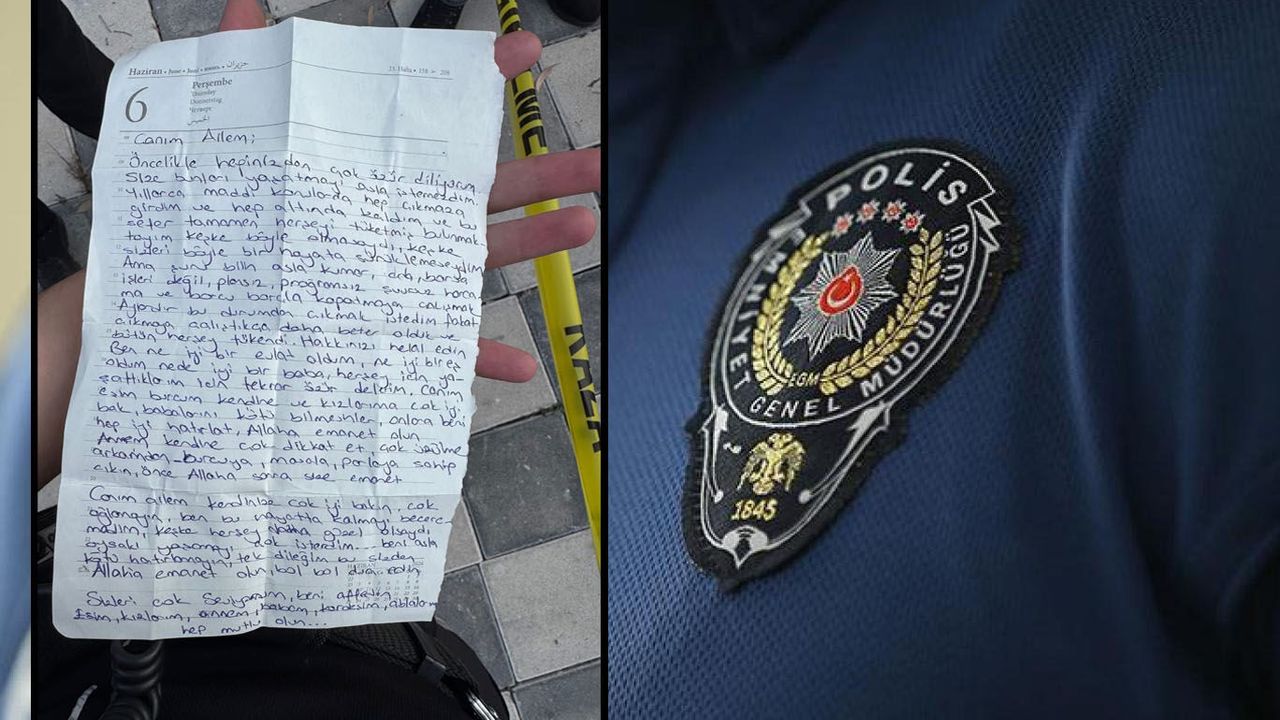 Haziran • June • Juni • июнь • حزيران
23. Hafta • 158 - 208
6
Perşembe
Thursday
Donnerstag
Четверг
الخميس
Canım Ailem;
Öncelikle hepinizden çok özür diliyorum
Size bunları yaşatmayı asla istemezdim
Yıllarca maddi konularda hep çıkmaza
girdim ve hep altında kaldım ve bu
sefer tamamen herşeyi tüketmiş bulunmak
tayım keşke böyle olmasaydı, keşke
sizleri böyle bir hayata sürüklemeseydim
Ama şunu bilin asla kumar, borsa
işleri değil, plansız, programsız sursuz harca
ma ve borcu borçla kapatmaya çalışmak
Aylardır bu durumdan çıkmak istedim fakat
çıkmaya çalıştıkca daha beter oldu ve
bütün herşey tükendi. Hakkınızı helal edin
Ben ne iyi bir evlat oldum, ne iyi bir eş
oldum nede iyi bir baba, herşey için ya-
şattıklarım için tekrar özür dilerim. Canım
eşim burcum kendine ve kızlarıma çok iyi
bak, babalarını kötü bilmesinler, onlara beni
hep iyi hatırlat, Allaha emanet olun
Annem kendine çok dikkat et, çok üzülme
arkamdan burcuya, masala, parlaya sahip
çıkın, önce Allaha sonra size emanet
Canım ailem kendinize çok iyi bakın, çok
ağlamayın, ben bu hayatta kalmayı becere-
medim, keşke herşey güzel olsaydı
oysaki yaşamayı çok isterdim... beni asla
kötü hatırlamayın, tek dileğim bu sizden
Allaha emanet olun, bol bol dua edin
Sizleri çok seviyorum, beni affedin
Eşim, kızlarım, annem, babam, kardeşim, ablam
hep mutlu olun...
POLİS
EMNİYET GENEL MÜDÜRLÜĞÜ
EGM
1845